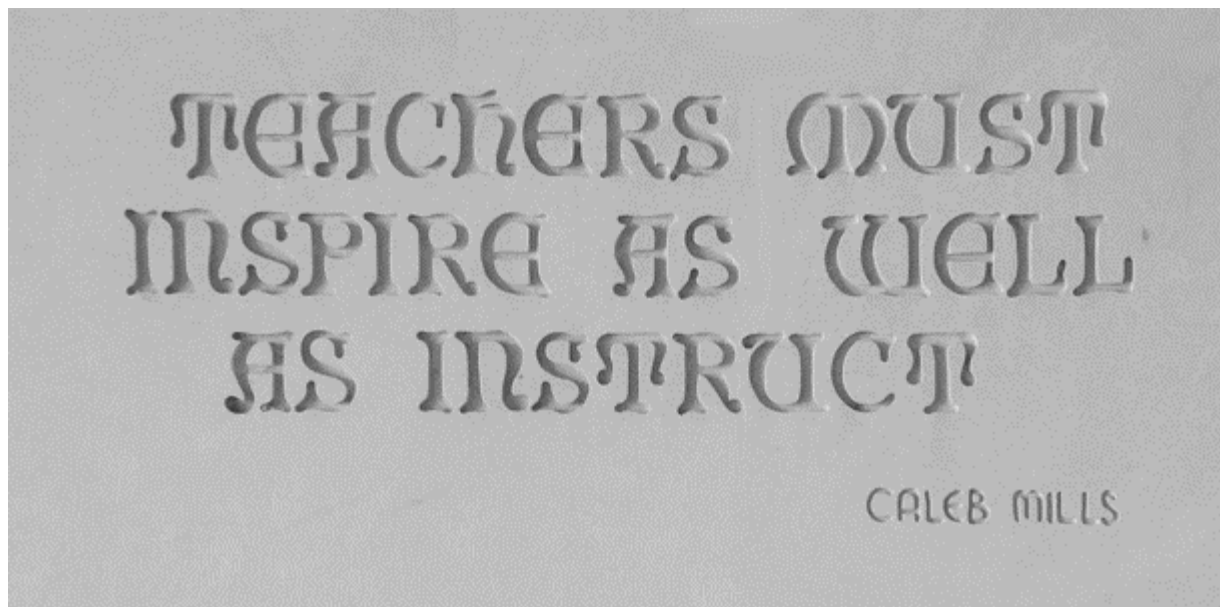 TEACHERS MUST
INSPIRE AS WELL
AS INSTRUCT
CALEB MILLS